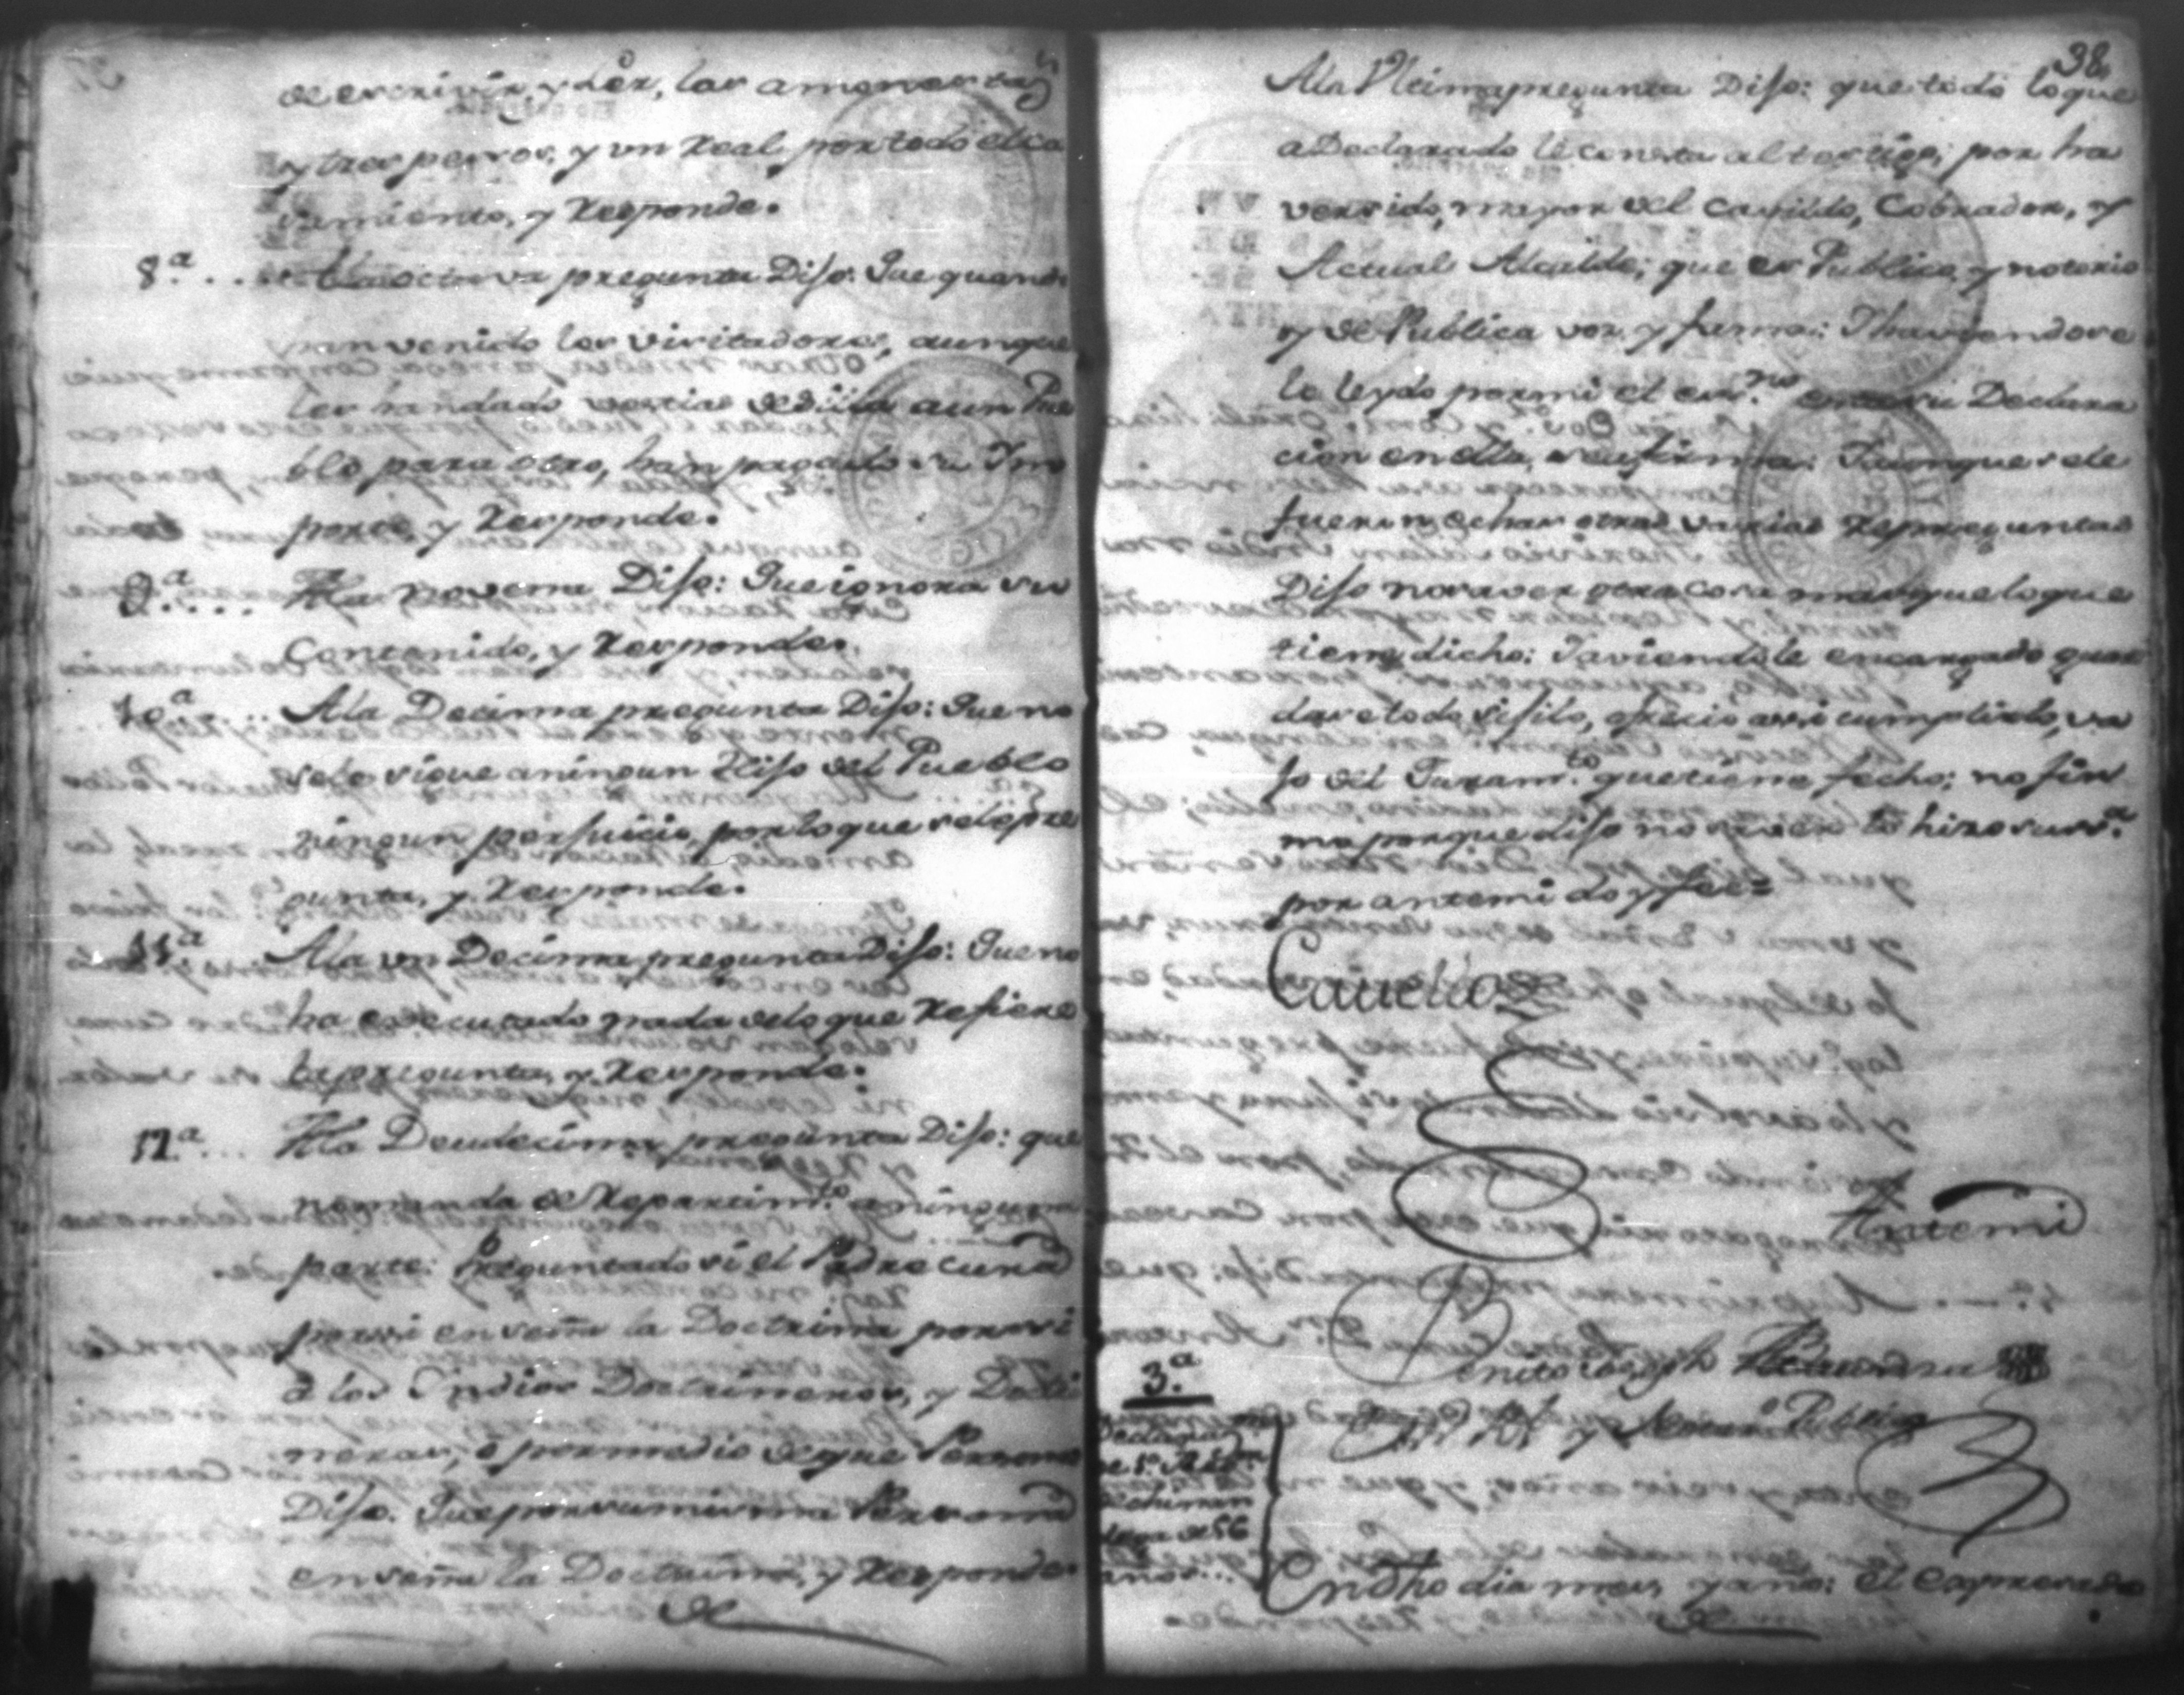 de escrivir, y Leer, las amonestaz.s
y tres pesos, y un Real por todo el ca
samiento, y Responde.
8.a ... A la octava pregunta Dijo: Que quando
han venido los Visitadores, aunque
les han dado vestias de silla a un Pue
blo para otro, han pagado su Im
porte, y Responde.
9.a .... A la novena Dijo: Que ignora su
Contenido, y Responde.
10.a ... A la Decima pregunta Dijo: Que no
se le sigue a ningun Hijo del Pueblo
ningun perjuicio, por lo que se le pre
gunta, y Responde.
11.a A la un Decima pregunta Dijo: Que no
ha executado nada de lo que Refiere
la pregunta, y Responde.
12.a ... A la Deudecima pregunta Dijo: que
no manda de Repartim.to a ninguna
parte: Preguntado si el Padre cura
por si enseña la Doctrina por si
â los Indios Doctrineros, y Doctri
neras, ô por medio de que Persona
Dijo. Que por su misma Persona
enseña la Doctrina, y Responde.
38,
A la Vltima pregunta Dijo: que todo lo que
a Declarado le consta al testigo; por ha
ver sido, mayor del cavildo, Cobrador, y
Actual Alcalde; que es Publico, y notorio
y de Publica voz, y fama: Y haviendose
le leydo por mi el esn.no su Declara
cion en ella, se afirma: Y aunque se le
fueron echas otras varias Repreguntas
Dijo no saver otra cosa mas que lo que
tiene dicho: Y aviendole encargado guar
dase todo sijilo, ofrecio assi cumplirlo, va
jo del Juram.to que tiene fecho; no fir
ma porque dijo no saver lo hizo su ss.a
por antemi doy fee=
Antemi
Benito Joseph
y Notar.o Publico
3.a
años...
En dho dia mes, y año: el expresado